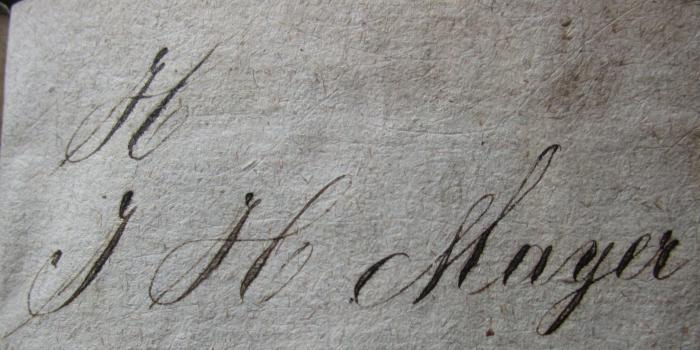 H
J H Mayer